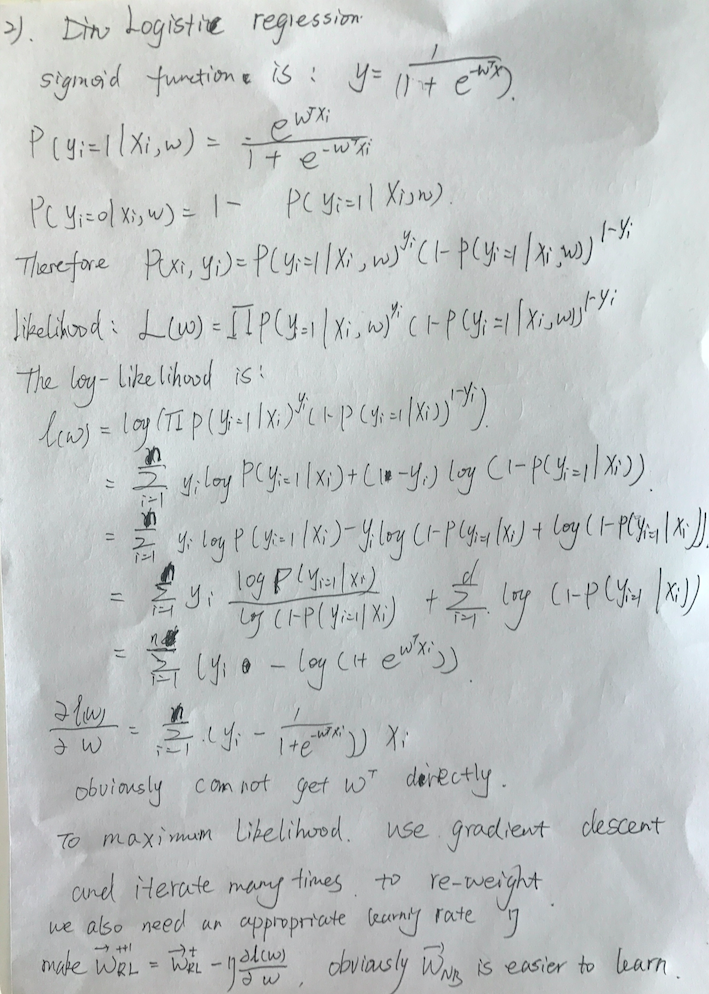 2). In Logistic regression
sigmoid function is : y = 1 / (1 + e^{-wᵀx}).
P(yi=1|xi,w) = e^{wᵀxi} / 1 + e^{-wᵀxi}
P(yi=0|xi,w) = 1 - P(yi=1|xi,w).
Therefore P(xi, yi) = P(yi=1|xi,w)^{yi} (1-P(yi=1|xi,w))^{1-yi}
likelihood : L(w) = ΠP(y=1|xi,w)^{yi} (1-P(yi=1|xi,w))^{1-yi}
The log-likelihood is :
l(w) = log(Π P(yi=1|xi)^{yi} (1-P(yi=1|xi))^{1-yi})
= Σ_{i=1}^{n} yi log P(yi=1|xi) + (1-yi) log (1-P(yi=1|xi)).
= Σ_{i=1}^{n} yi log P(yi=1|xi) - yi log (1-P(yi=1|xi) + log(1-P(yi=1|xi))
= Σ_{i=1}^{n} yi log P(yi=1|xi) / log (1-P(yi=1|xi) + Σ_{i=1}^{d} log (1-P(yi=1|xi))
= Σ_{i=1}^{n} (yi - log (1+ e^{wᵀxi}))
∂l(w) / ∂w = Σ_{i=1}^{n} (yi - 1 / 1+e^{-wᵀxi})) xi
obviously can not get wᵀ directly.
To maximum likelihood. use gradient descent
and iterate many times to re-weight
we also need an appropriate learning rate η
make w⃗_{RL}^{t+1} = w⃗_{RL}^{t} - η ∂l(w) / ∂w , obviously w⃗_{NB} is easier to learn.